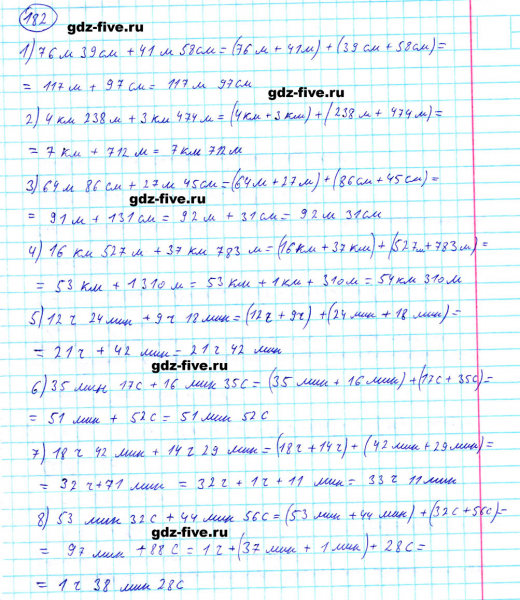 182
gdz-five.ru
1) 76 м 39 см + 41 м 58 см = (76 м + 41 м) + (39 см + 58 см) =
= 117 м + 97 см = 117 м 97 см
gdz-five.ru
2) 4 км 238 м + 3 км 474 м = (4 км + 3 км) + (238 м + 474 м) =
= 7 км + 712 м = 7 км 712 м
3) 64 м 86 см + 27 м 45 см = (64 м + 27 м) + (86 см + 45 см) =
gdz-five.ru
= 91 м + 131 см = 92 м + 31 см = 92 м 31 см
4) 16 км 527 м + 37 км 783 м = (16 км + 37 км) + (527 м + 783 м) =
= 53 км + 1310 м = 53 км + 1 км + 310 м = 54 км 310 м
5) 12 ч 24 мин + 9 ч 18 мин = (12 ч + 9 ч) + (24 мин + 18 мин) =
= 21 ч + 42 мин = 21 ч 42 мин
gdz-five.ru
6) 35 мин 17 с + 16 мин 35 с = (35 мин + 16 мин) + (17 с + 35 с) =
= 51 мин + 52 с = 51 мин 52 с
7) 18 ч 42 мин + 14 ч 29 мин = (18 ч + 14 ч) + (42 мин + 29 мин) =
= 32 ч + 71 мин = 32 ч + 1 ч + 11 мин = 33 ч 11 мин
8) 53 мин 32 с + 44 мин 56 с = (53 мин + 44 мин) + (32 с + 56 с) =
gdz-five.ru
= 97 мин + 88 с = 1 ч + (37 мин + 1 мин) + 28 с =
= 1 ч 38 мин 28 с